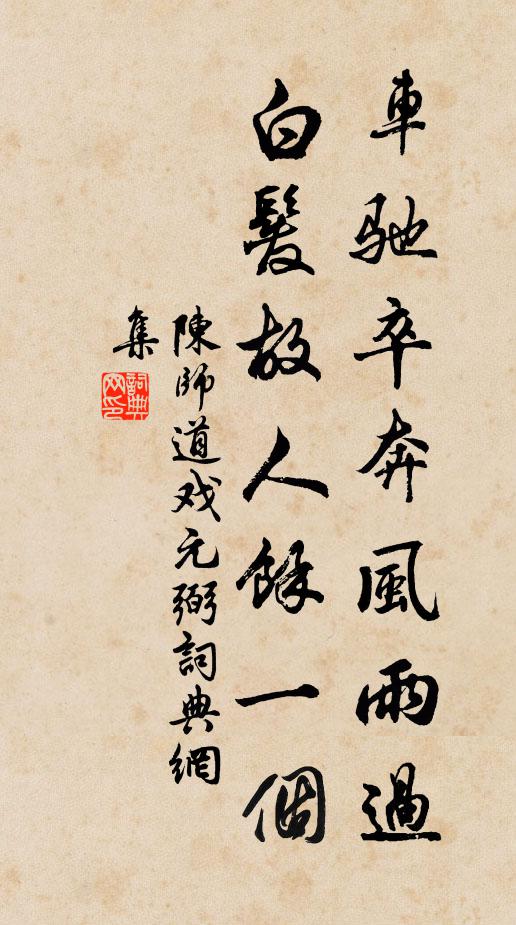 車馳卒奔風雨過
白髮故人餘一個
陳師道戏元弼詞典網
集
詞典网印